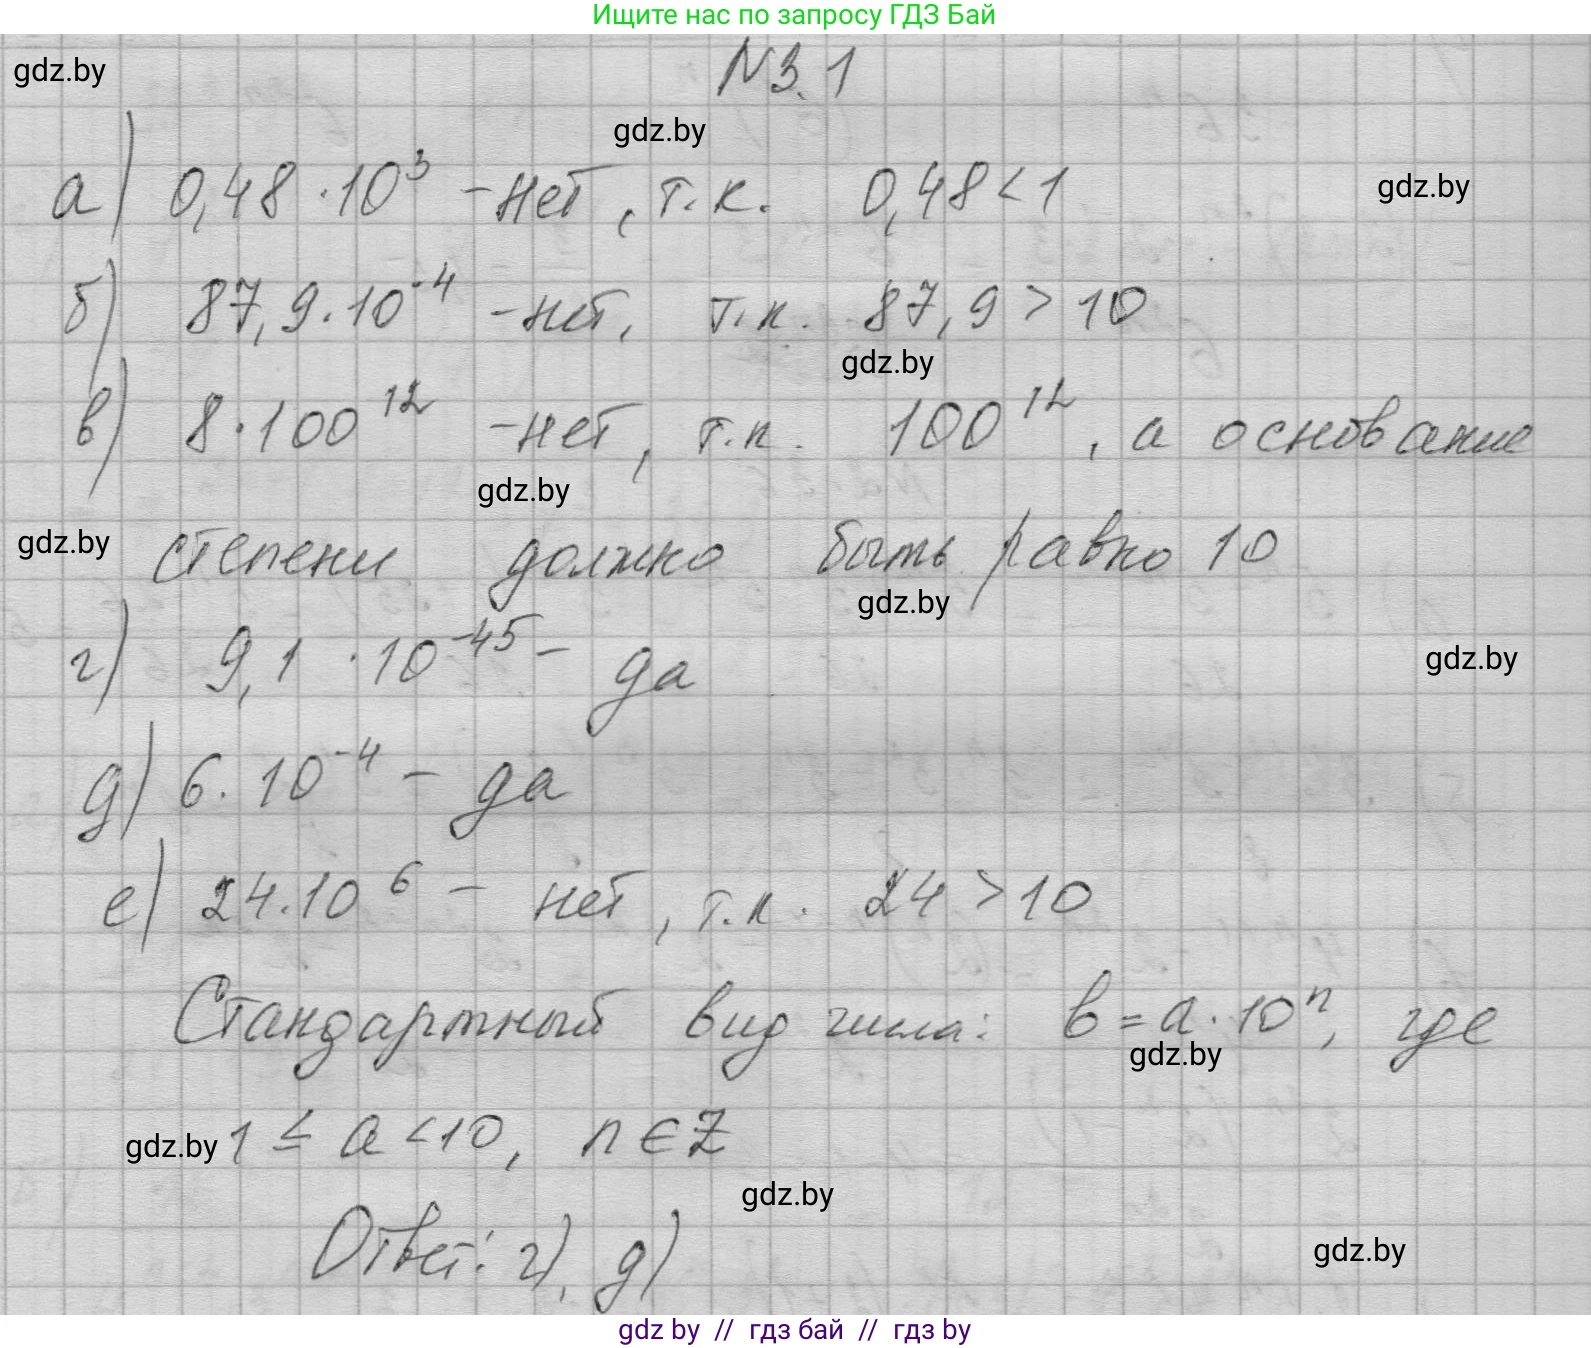 Ищите нас по запросу ГДЗ Бай
N3.1
gdz.by
gdz.by
а) 0,48 · 10³ - нет, т.к. 0,48 < 1
gdz.by
б) 87,9 · 10⁻⁴ - нет, т.к. 87,9 > 10
gdz.by
в) 8 · 100¹² - нет, т.к. 100¹², а основание
gdz.by
gdz.by
степени должно быть равно 10
gdz.by
г) 9,1 · 10⁻⁴⁵ - да
gdz.by
д) 6 · 10⁻⁴ - да
е) 24 · 10⁶ - нет, т.к. 24 > 10
Стандартный вид числа: b = a · 10ⁿ, где
gdz.by
gdz.by
1 ≤ a < 10, n ∈ Z
gdz.by
Ответ: г), д)
gdz.by
gdz by // гдз бай // гдз by